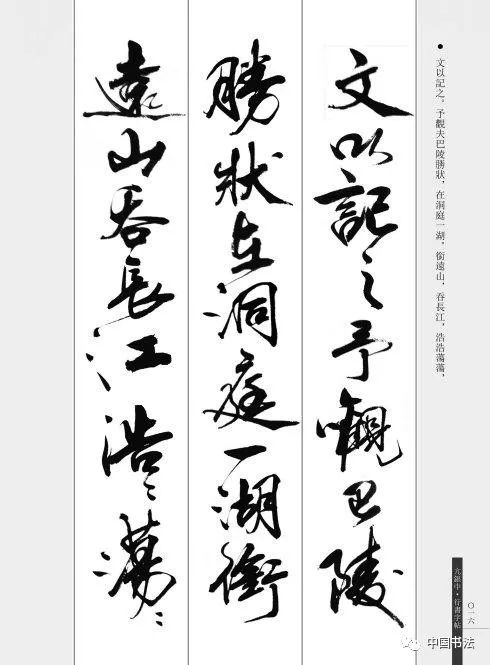 文以記之予觀巴陵
勝狀在洞庭一湖銜
遠山吞長江浩〻蕩〻
文以記之。予觀夫巴陵勝狀，在洞庭一湖，銜遠山，吞長江，浩浩蕩蕩，
行書字帖
〇一六
中国书法